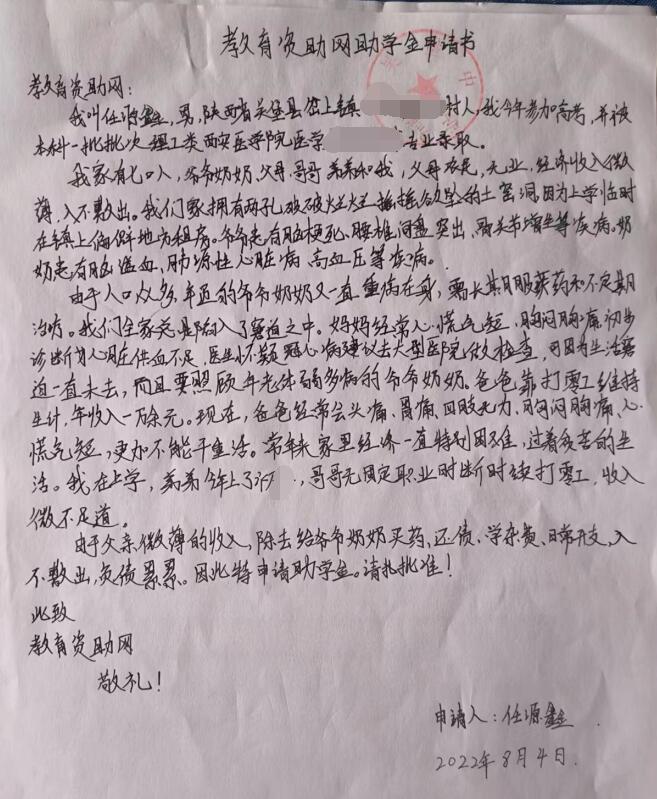 教育资助网助学金申请书
教育资助网：
我叫任源鑫，男，陕西省吴堡县岔上镇村人，我今年参加高考，并被
本科一批批次理工类西安医学院医学专业录取。
我家有七口人，爷爷奶奶、父母、哥哥弟弟和我，父母农民，无业，经济收入微
薄，入不敷出。我们家拥有两孔破破烂烂摇摇欲坠的土窑洞，因为上学临时
在镇上偏僻地方租房。爷爷患有脑梗死、腰椎间盘突出、骨关节增生等疾病。奶
奶患有脑溢血、肺源性心脏病、高血压等疾病。
由于人口众多，年迈的爷爷奶奶又一直重病在身，需长期服药和不定期
治疗。我们全家竟是陷入了窘迫之中。妈妈经常心慌气短，胸闷胸痛，初步
诊断为心脏供血不足，医生怀疑冠心病建议去大型医院做检查，可因为生活窘
迫一直未去，而且要照顾年老体弱多病的爷爷奶奶。爸爸靠打零工维持
生计，年收入一万余元。现在，爸爸经常会头痛、胃痛、四肢无力、胸闷胸痛、心
慌气短，更加不能干重活。常年来家里经济一直特别困难，过着贫苦的生
活。我在上学，弟弟今年上了初，哥哥无固定职业时断时续打零工，收入
微不足道。
由于父亲微薄的收入，除去给爷爷奶奶买药、还债、学杂费、日常开支，入
不敷出，负债累累。因此特申请助学金。请扎批准！
此致
教育资助网
敬礼！
申请人：任源鑫
2022年8月4日.